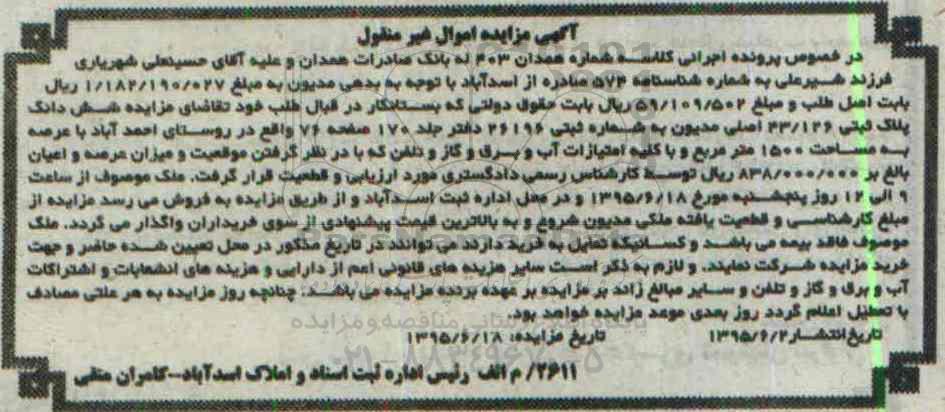 آگهی مزایده اموال غیر منقول
در خصوص پرونده اجرائی کلاسه شماره همدان ۴۰۳ له بانک صادرات همدان و علیه آقای حسینعلی شهریاری
فرزند شیرعلی به شماره شناسنامه ۵۷۴ صادره از اسدآباد با توجه به بدهی مدیون به مبلغ ۱/۱۸۲/۱۹۰/۰۲۷ ریال
بابت اصل طلب و مبلغ ۵۹/۱۰۹/۵۰۲ ریال بابت حقوق دولتی که بستانکار در قبال طلب خود تقاضای مزایده شش دانگ
پلاک ثبتی ۴۳/۱۲۶ اصلی مدیون به شماره ثبتی ۲۶۱۹۶ دفتر جلد ۱۷۰ صفحه ۷۶ واقع در روستای احمد آباد با عرصه
به مساحت ۱۵۰۰ متر مربع و با کلیه امتیازات آب و برق و گاز و تلفن که با در نظر گرفتن موقعیت و میزان عرصه و اعیان
بالغ بر ۸۳۸/۰۰۰/۰۰۰ ریال توسط کارشناس رسمی دادگستری مورد ارزیابی و قطعیت قرار گرفت. ملک موصوف از ساعت
۹ الی ۱۲ روز پنجشنبه مورخ ۱۳۹۵/۶/۱۸ و در محل اداره ثبت اسدآباد و از طریق مزایده به فروش می رسد مزایده از
مبلغ کارشناسی و قطعیت یافته ملکی مدیون شروع و به بالاترین قیمت پیشنهادی از سوی خریداران واگذار می گردد. ملک
موصوف فاقد بیمه می باشد و کسانیکه تمایل به خرید دارند می توانند در تاریخ مذکور در محل تعیین شده حاضر و جهت
خرید مزایده شرکت نمایند. و لازم به ذکر است سایر هزینه های قانونی اعم از دارایی و هزینه های انشعابات و اشتراکات
آب و برق و گاز و تلفن و سایر مبالغ زائد بر مزایده بر عهده برنده مزایده می باشد. چنانچه روز مزایده به هر علتی مصادف
با تعطیل اعلام گردد روز بعدی موعد مزایده خواهد بود.
تاریخ انتشار ۱۳۹۵/۶/۲ تاریخ مزایده: ۱۳۹۵/۶/۱۸
۲۶۱۱/ م الف رئیس اداره ثبت اسناد و املاک اسدآباد-کامران متقی